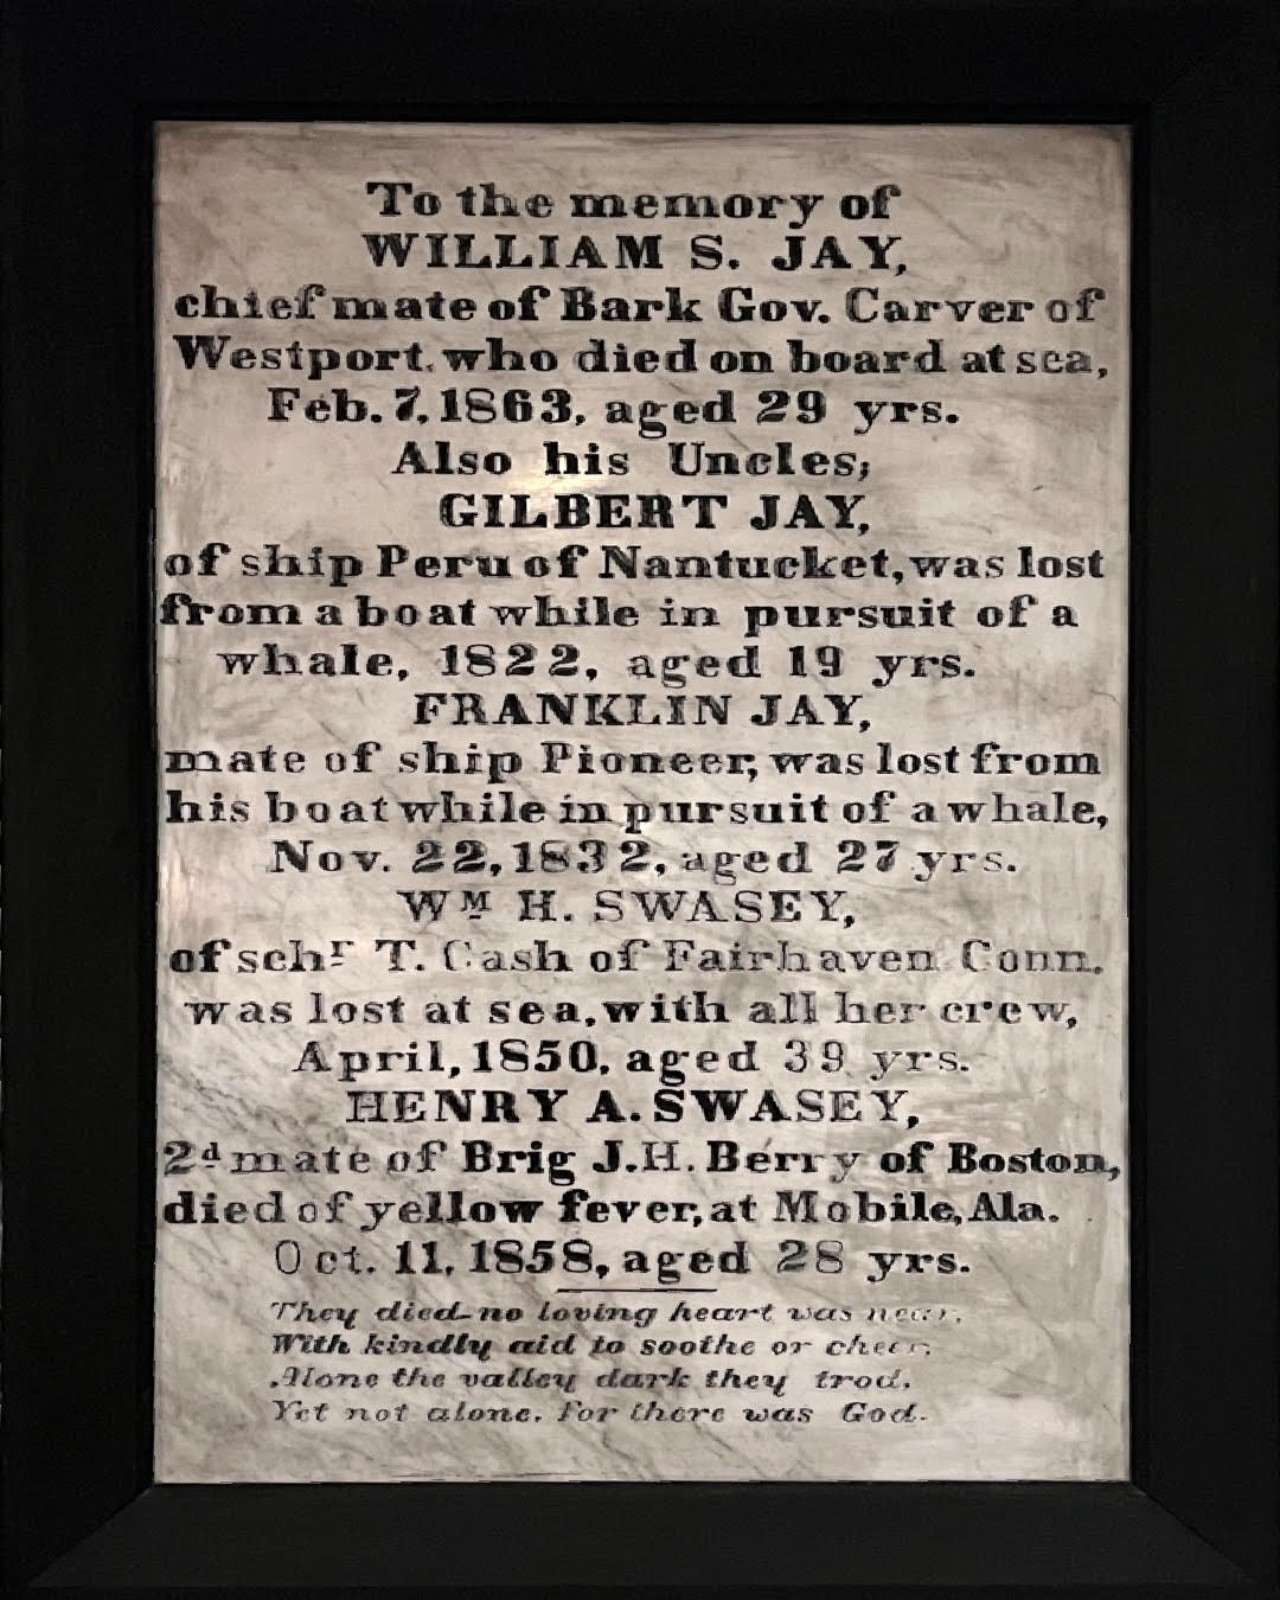 To the memory of
WILLIAM S. JAY,
chief mate of Bark Gov. Carver of
Westport, who died on board at sea,
Feb. 7, 1863, aged 29 yrs.
Also his Uncles;
GILBERT JAY,
of ship Peru of Nantucket, was lost
from a boat while in pursuit of a
whale, 1822, aged 19 yrs.
FRANKLIN JAY,
mate of ship Pioneer, was lost from
his boat while in pursuit of a whale,
Nov. 22, 1832, aged 27 yrs.
Wᴹ H. SWASEY,
of schʳ T. Cash of Fairhaven Conn.
was lost at sea, with all her crew,
April, 1850, aged 39 yrs.
HENRY A. SWASEY,
2ᵈ mate of Brig J.H. Berry of Boston,
died of yellow fever, at Mobile, Ala.
Oct. 11, 1858, aged 28 yrs.
They died-no loving heart was near,
With kindly aid to soothe or cheer;
Alone the valley dark they trod,
Yet not alone, For there was God.